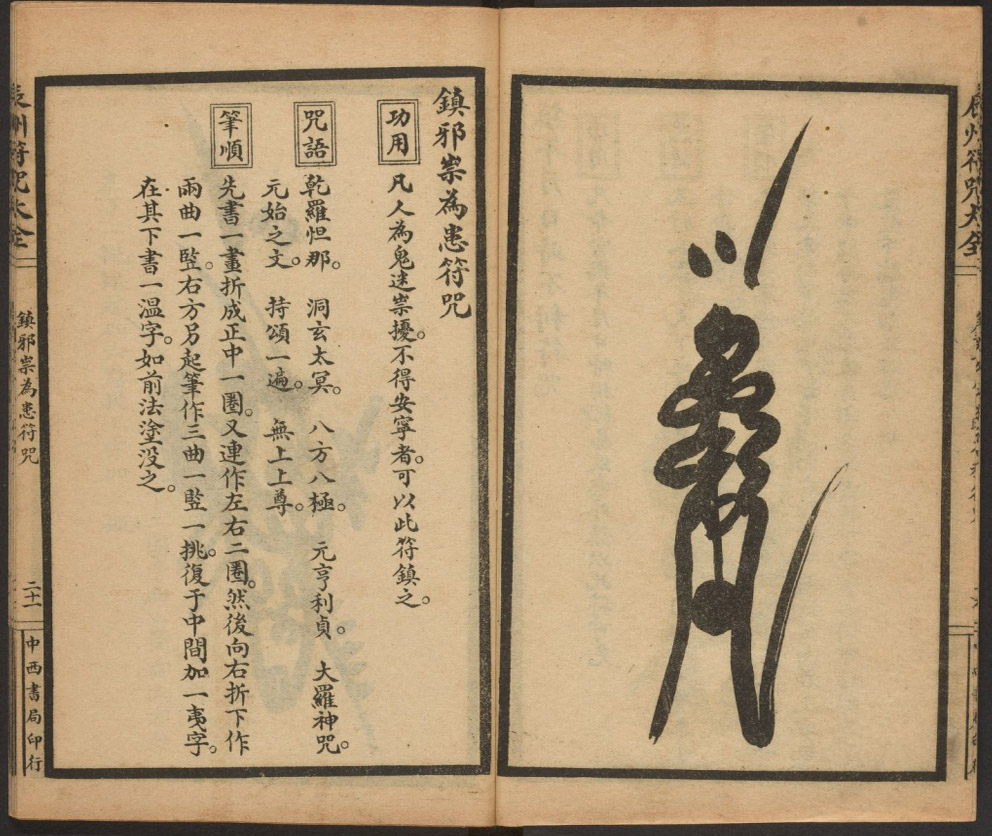 鎮邪祟為患符咒
功用
凡人為鬼迷祟擾。不得安寧者。可以此符鎮之。
咒語
乾羅怛那。 洞玄太冥。 八方八極。 元亨利貞。 大羅神咒。
元始之文。 持頌一遍。 無上上尊。
筆順
先書一畫折成正中一圈。又連作左右二圈。然後向右折下作
兩曲一竪。右方另起筆作三曲一竪一挑。復于中間加一夷字。
在其下書一溫字。如前法塗没之。
辰州符咒大全
鎮邪祟為患符咒
二十一
中西書局印行
辰州符咒大全